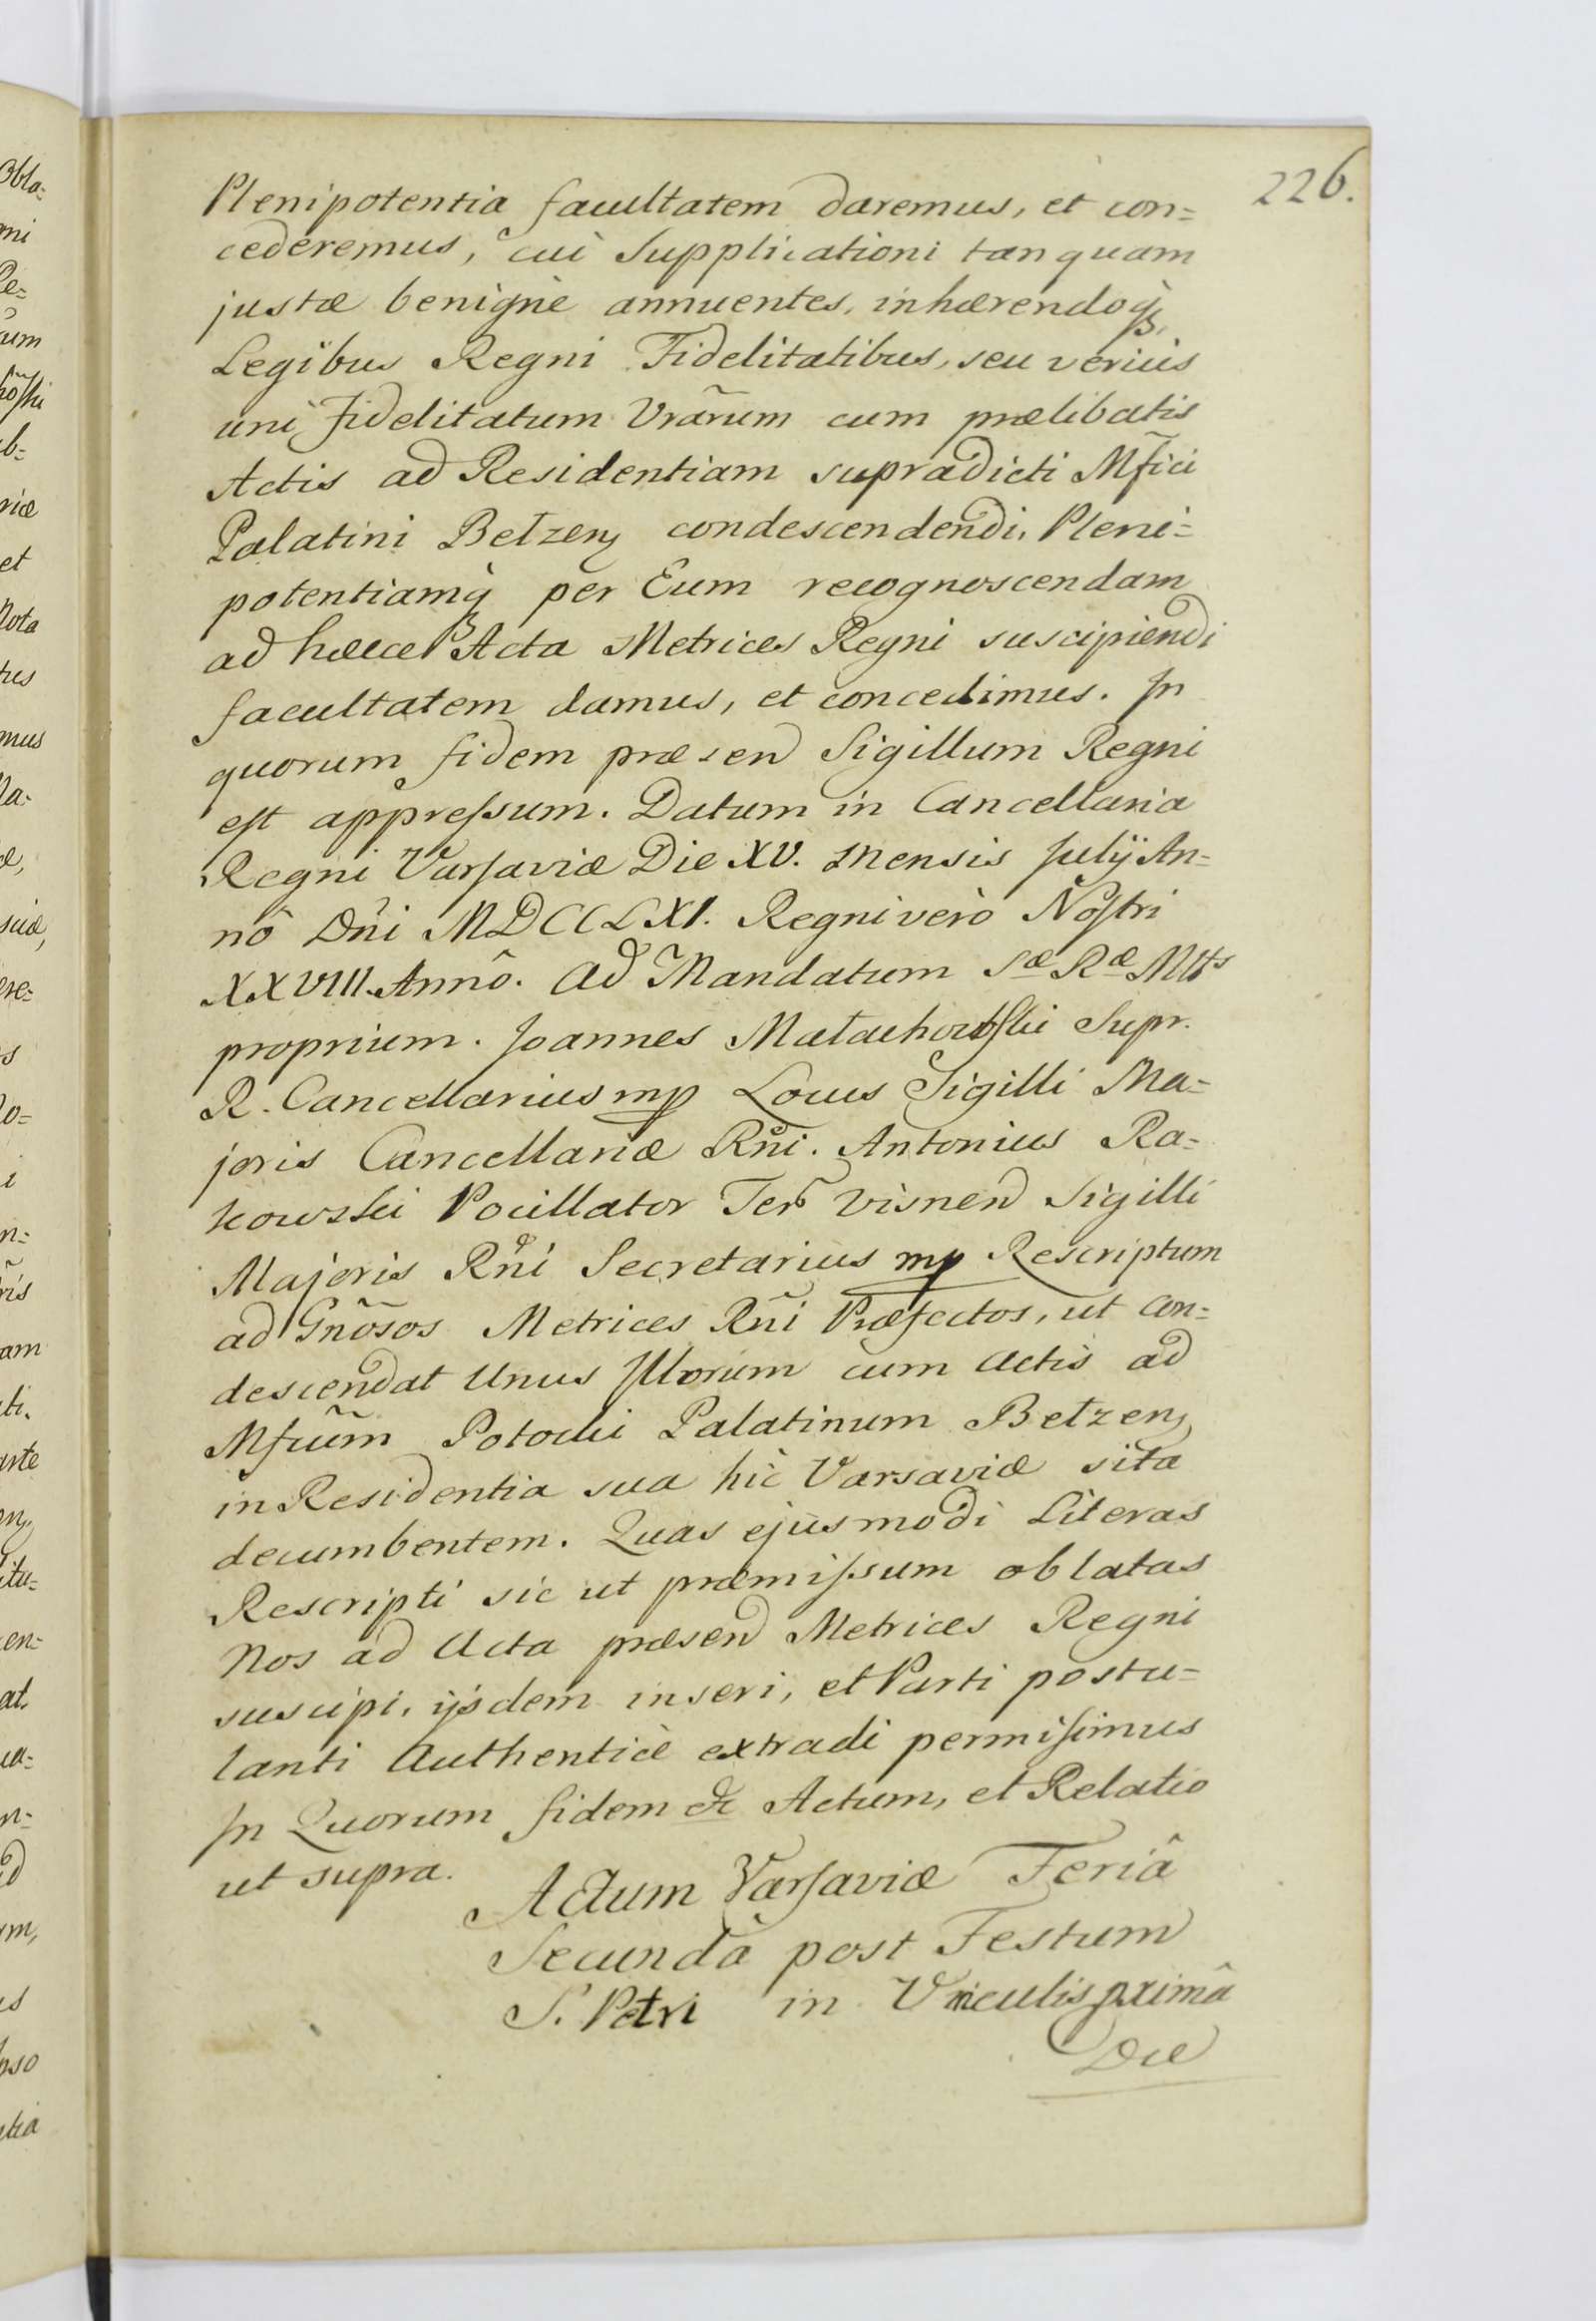 226.
Plenipotentia facultatem daremus, et con=
cederemus, cui Supplicationi tanquam
justæ benignè annuentes, inhærendoq́ꝫ
Legibus Regni Fidelitatibus, seu veriùs
uni Fidelitatum Vrãrum cum prælibatis
Actis ad Residentiam supradicti Mf̃ici
Palatini Bełzeņ condescendendi, Pleni=
potentiamq́ꝫ per Eum recognoscendam
ad hæcce Acta Metrices Regni suscipiendi
facultatem damus, et concedimus. In
quorum fidem præsen̄ Sigillum Regni
est appressum. Datum in Cancellaria
Regni Varsaviæ Die XV. Mensis Julij An=
nô Dñi MDCCLXI. Regni verò Nostri
XXVIII. Annô. Ad Mandatum Sæ Ræ Mtts
proprium. Joannes Małachowski Supr.
R. Cancellarius mp Locus Sigilli Ma=
joris Cancellariæ Rñi. Antonius Ra=
kowski Pocillator Ter̃ Visnen̄ Sigilli
Majoris Rñi Secretarius mp Rescriptum
ad Gñosos Metrices Rñi Præfectos, ut con=
descendat Unus Illorum cum Actis ad
Mfcũm Potocki Palatinum Bełzeņ
in Residentia sua hîc Varsaviæ sita
decumbentem. Quas ejusmodi Literas
Rescripti sic ut præmissum oblatas
Nos ad Acta præsen̄ Metrices Regni
suscipi, ijsdem inseri, et Parti postu=
lanti Authenticè extradi permisimus
In Quorum fidem &c Actum, et Relatio
ut supra.
Actum Varsaviæ Feriâ
Secundâ post Festum
S. Petri in Vinculis primâ
Die